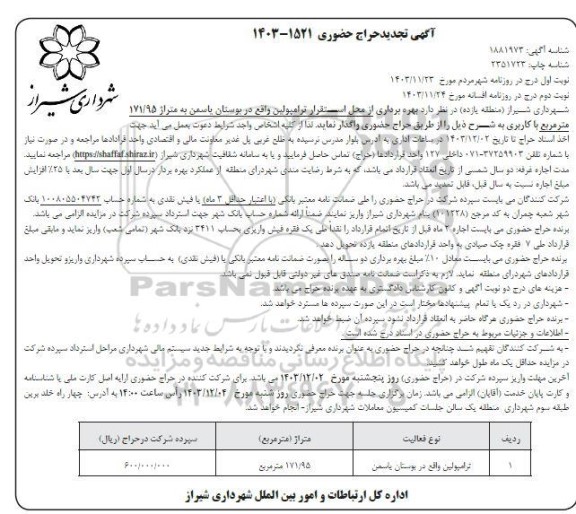 آگهی تجدیدحراج حضوری ۱۵۲۱-۱۴۰۳
شناسه آگهی: ۱۸۸۱۹۷۳
شناسه چاپ: ۲۳۵۱۷۲۳
نوبت اول درج در روزنامه شهرمردم مورخ ۱۴۰۳/۱۱/۲۳
نوبت دوم درج در روزنامه افسانه مورخ ۱۴۰۳/۱۱/۲۴
شهرداری شیراز
شهرداری شیراز (منطقه یازده) در نظر دارد بهره برداری از محل استقرار ترامپولین واقع در بوستان یاسمن به متراژ ۱۷۱/۹۵
مترمربع با کاربری به شرح ذیل را از طریق حراج حضوری واگذار نماید. لذا از کلیه اشخاص واجد شرایط دعوت بعمل می آید جهت
اخذ اسناد حراج تا تاریخ ۱۴۰۳/۱۲/۰۲ در ساعات اداری به آدرس بلوار مدرس نرسیده به ضلع غربی پل غدیر معاونت مالی و اقتصادی واحد قراردادها مراجعه و در صورت نیاز
با شماره تلفن ۳۷۲۵۹۹۰۳-۰۷۱ داخلی ۱۲۷ واحد قراردادها (حراج) تماس حاصل فرمایید و یا به سامانه شفافیت شهرداری شیراز (https://shaffaf.shiraz.ir) مراجعه نمایید.
مدت اجاره غرفه: دو سال شمسی از تاریخ انعقاد قرارداد می باشد، که به شرط رضایت مندی شهرداری منطقه از عملکرد بهره بردار درسال اول جهت سال بعد با ۲۵٪ افزایش
مبلغ اجاره نسبت به سال قبل، قابل تمدید می باشد.
شرکت کنندگان می بایست سپرده شرکت در حراج حضوری را طی ضمانت نامه معتبر بانکی (با اعتبار حداقل ۳ ماه) یا فیش نقدی به شماره حساب ۱۰۰۸۰۵۵۰۴۷۴۲ بانک
شهر شعبه چمران به کد مرجع (۱۰۱۲۲۸) بنام شهرداری شیراز واریز نمایند. ضمناً ارائه شماره حساب بانک شهر جهت استرداد سپرده شرکت در مزایده الزامی می باشد.
برنده حراج حضوری می بایست اجاره ۲ ماه قبل از تاریخ اتمام قرارداد را نقداً طی یک فقره فیش واریزی بحساب ۳۴۱۱ نزد بانک شهر (تمامی شعب) واریز نماید و مابقی مبلغ
قرارداد طی ۷ فقره چک صیادی به واحد قراردادهای منطقه یازده تحویل دهد.
برنده حراج حضوری می بایست معادل ۱۰٪ مبلغ بهره برداری دو ساله را بصورت ضمانت نامه معتبر بانکی یا (فیش نقدی) به حساب سپرده شهرداری واریزو تحویل واحد
قراردادهای شهرداری منطقه نماید. لازم به ذکراست ضمانت نامه صندق های غیر دولتی قابل قبول نمی باشد.
- هزینه های درج دو نوبت آگهی و کانون کارشناس دادگستری به عهده برنده حراج می باشد.
- شهرداری در رد یک یا تمام پیشنهادها مختار است در این صورت سپرده ها مسترد خواهد شد.
- برنده حراج حضوری هرگاه حاضر به انعقاد قرارداد نشود سپرده آن ضبط خواهد شد.
- اطلاعات و جزئیات مربوط به حراج حضوری در اسناد درج شده است.
- به شرکت کنندگان تفهیم شد چنانچه در حراج حضوری به عنوان برنده معرفی نگردیدند و با توجه به شرایط جدید سیستم مالی شهرداری مراحل استرداد سپرده شرکت
در مزایده حداقل یک ماه طول خواهد کشید.
آخرین مهلت واریز سپرده شرکت در (حراج حضوری) روز پنجشنبه مورخ ۱۴۰۳/۱۲/۰۲ می باشد. برای شرکت کننده در حراج حضوری ارایه اصل کارت ملی یا شناسنامه
و کارت پایان خدمت (آقایان) الزامی می باشد. زمان برگزاری جلسه جهت حراج حضوری روز شنبه مورخ ۱۴۰۳/۱۲/۰۴ رأس ساعت ۱۴:۰۰ به آدرس: چهار راه خلد برین
طبقه سوم شهرداری منطقه یک سالن جلسات کمیسیون معاملات شهرداری شیراز- انجام خواهد شد.
ردیف نوع فعالیت متراژ (مترمربع) سپرده شرکت درحراج (ریال)
۱ ترامپولین واقع در بوستان یاسمن ۱۷۱/۹۵ مترمربع ۶۰۰/۰۰۰/۰۰۰
اداره کل ارتباطات و امور بین الملل شهرداری شیراز